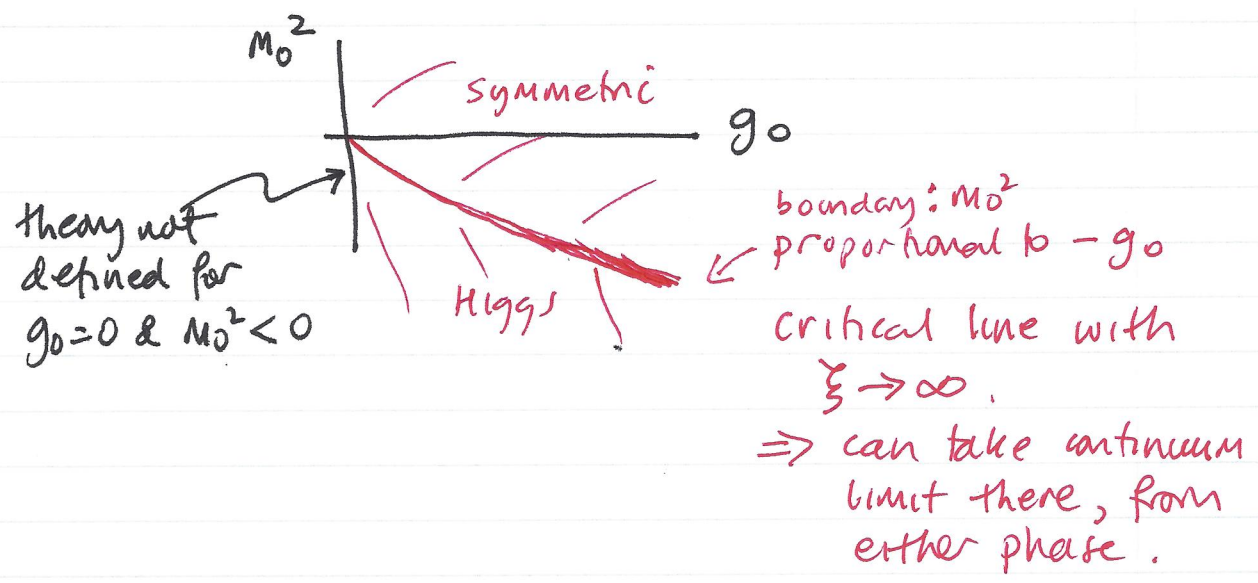 M₀²
symmetric
g₀
theory not
defined for
g₀=0 & M₀²<0
Higgs
boundary: M₀²
proportional to -g₀
critical line with
ξ→∞.
⇒ can take continuum
limit there, from
either phase.